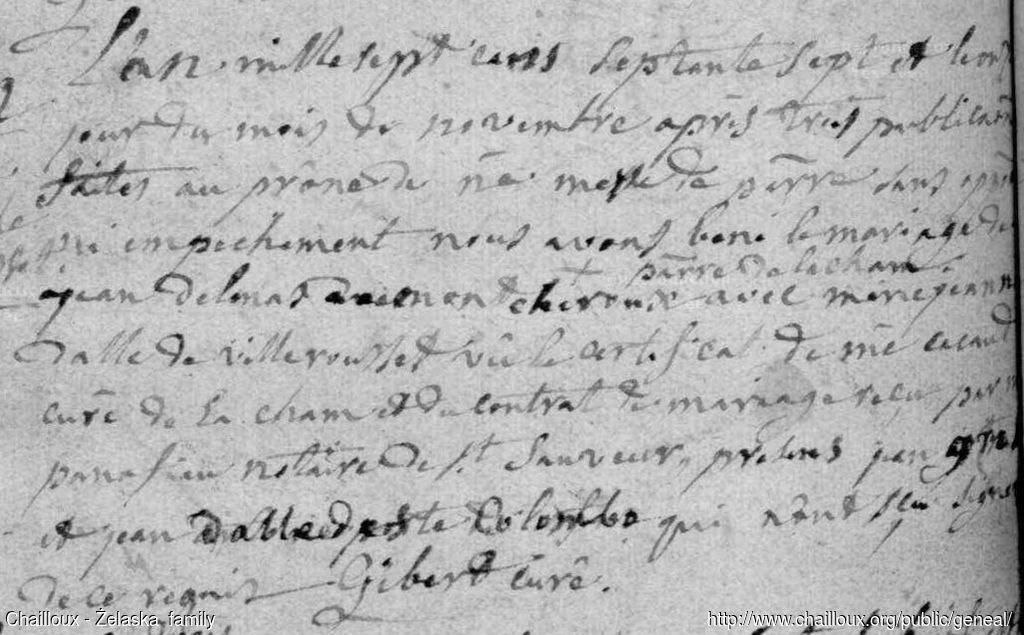 L'an mille sept cens septante sept et le onz
jour du mois de novembre aprēs trois publicaōn
faites au prône de nē messe de pārre sans
ni empechement nous avons beni le mariage de
pārre de la cham
jean delmas avec marie jeann
dalle de villeroussed vû le certificat de mē
curé de la cham et du contrat de mariage reçu par
panafieu notaire de st Sauveur, presens jean
et jean dalle de colombo qui n'ont sçu signer
de ce requis Gibert curé.
Chailloux - Żelaska family
http://www.chailloux.org/public/geneal/